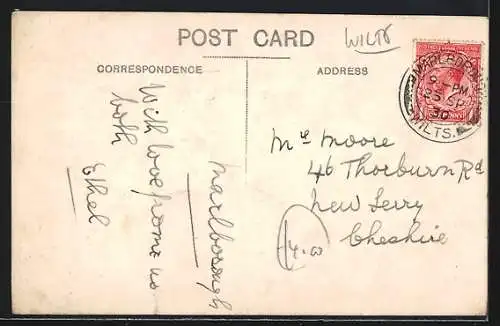 WILTS
POST CARD
CORRESPONDENCE
ADDRESS
MARLBOROUGH
6 PM
25 SP
30
WILTS.
Marlborough
With love from us
both
Ethel.
Mrs Moore
46 Thorburn Rd
New Ferry
Cheshire